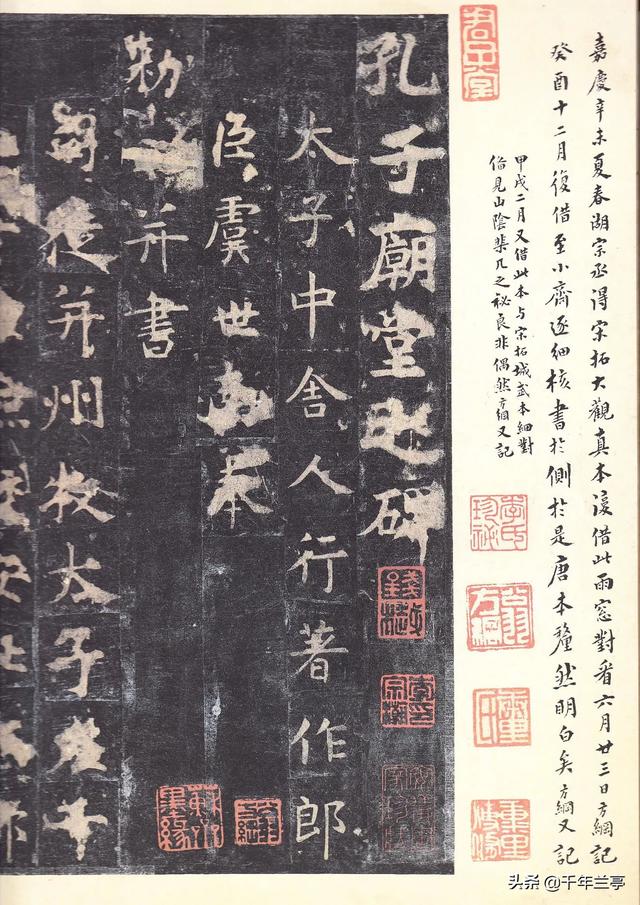 嘉慶辛未夏春湖宗丞得宋拓大觀真本復借此雨窓對看六月廿三日方綱記
癸酉十二月復借至小齋逐細核書於側於是唐本釐然明白矣方綱又記
甲戌二月又借此本与宋拓城武本細對
俻見山陰棐几之祕良非偶然方綱又記
孔子廟堂之碑
太子中舍人行著作郎
臣虞世南奉
勅撰并書
司徒并州牧太子左千
頭条 @千年兰亭